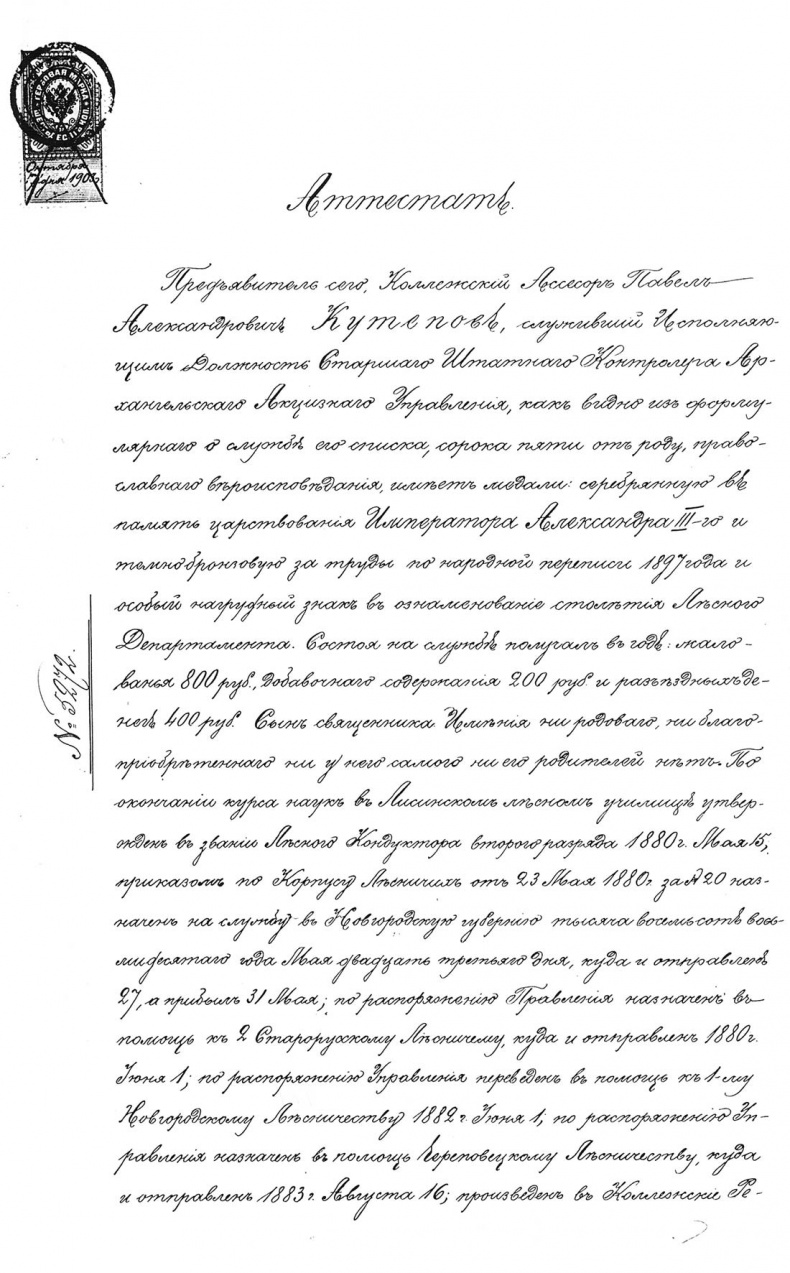 ГЕРБОВАЯ МАРКА
Октября
7 дня 1903
Аттестатъ.
Предъявитель сего, Коллежскій Ассесоръ Павелъ
Александровичъ Кутеповъ, служившій Исполняю-
щимъ Должность Старшаго Штатнаго Контролера Ар-
хангельскаго Акцизнаго Управленія, какъ видно изъ форму-
лярнаго о службѣ его списка, сорока пяти отъ роду, право-
славнаго вѣроисповѣданія, имѣетъ медали: серебрянную въ
память царствованія Императора Александра III-го и
темнобронзовую за труды по народной переписи 1897 года и
особый нагрудный знакъ въ ознаменованіе столѣтія Лѣсного
Департамента. Состоя на службѣ получалъ въ годъ: жало-
ванья 800 руб., добавочнаго содержанія 200 руб. и разъѣздныхъ де-
негъ 400 руб. Сынъ священника Имѣнія ни родоваго, ни благо-
пріобрѣтеннаго ни у него самого ни его родителей нѣтъ. По
окончаніи курса наукъ въ Лисинскомъ лѣсномъ училищѣ утвер-
жденъ въ званіи Лѣсного Кондуктора второго разряда 1880 г. Мая 15,
приказомъ по Корпусу Лѣсничихъ отъ 23 Мая 1880 г. за № 20 наз-
наченъ на службу въ Новгородскую губернію тысяча восемьсотъ вось-
мидесятаго года Мая двадцать третьяго дня, куда и отправленъ
27, а прибылъ 31 Мая; по распоряженію Правленія назначенъ въ
помощь къ 2 Старорусскому Лѣсничему, куда и отправлен 1880 г.
Іюня 1; по распоряженію Управленія переведенъ въ помощь къ 1-му
Новгородскому Лѣсничеству 1882 г. Іюня 1, по распоряженію Уп-
равленія назначенъ въ помощь Череповецкому Лѣсничеству, куда
и отправленъ 1883 г. Августа 16; произведенъ въ Коллежскіе Ре-